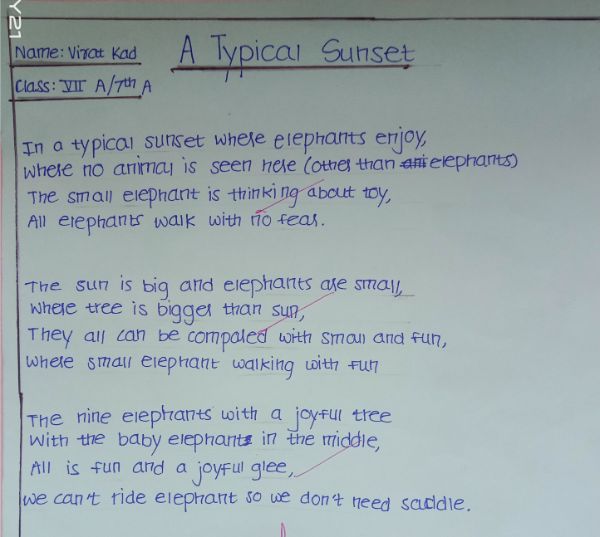 Y21
Name: Virat Kad
A Typical Sunset
Class: VII A/7th A
In a typical sunset where elephants enjoy,
where no animal is seen here (other than elephants)
The small elephant is thinking about toy,
All elephants walk with no fear.
The sun is big and elephants are small,
where tree is bigger than sun,
They all can be compared with small and fun,
where small elephant walking with fun
The nine elephants with a joyful tree
With the baby elephant in the middle,
All is fun and a joyful glee,
we can't ride elephant so we don't need saddle.